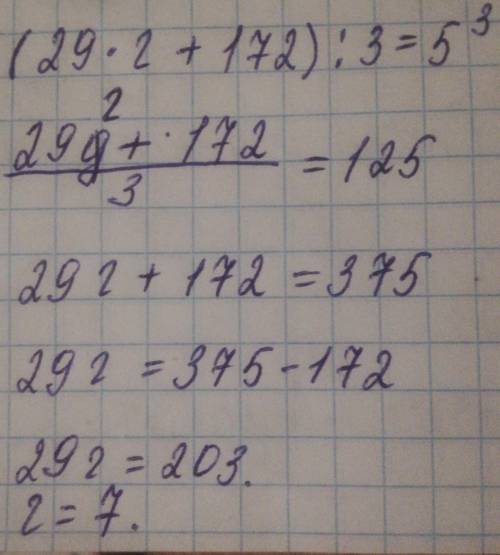 (29·г + 172) : 3 = 5³
г
29g + 172
3
= 125
29г + 172 = 375
29г = 375 - 172
29г = 203.
г = 7.